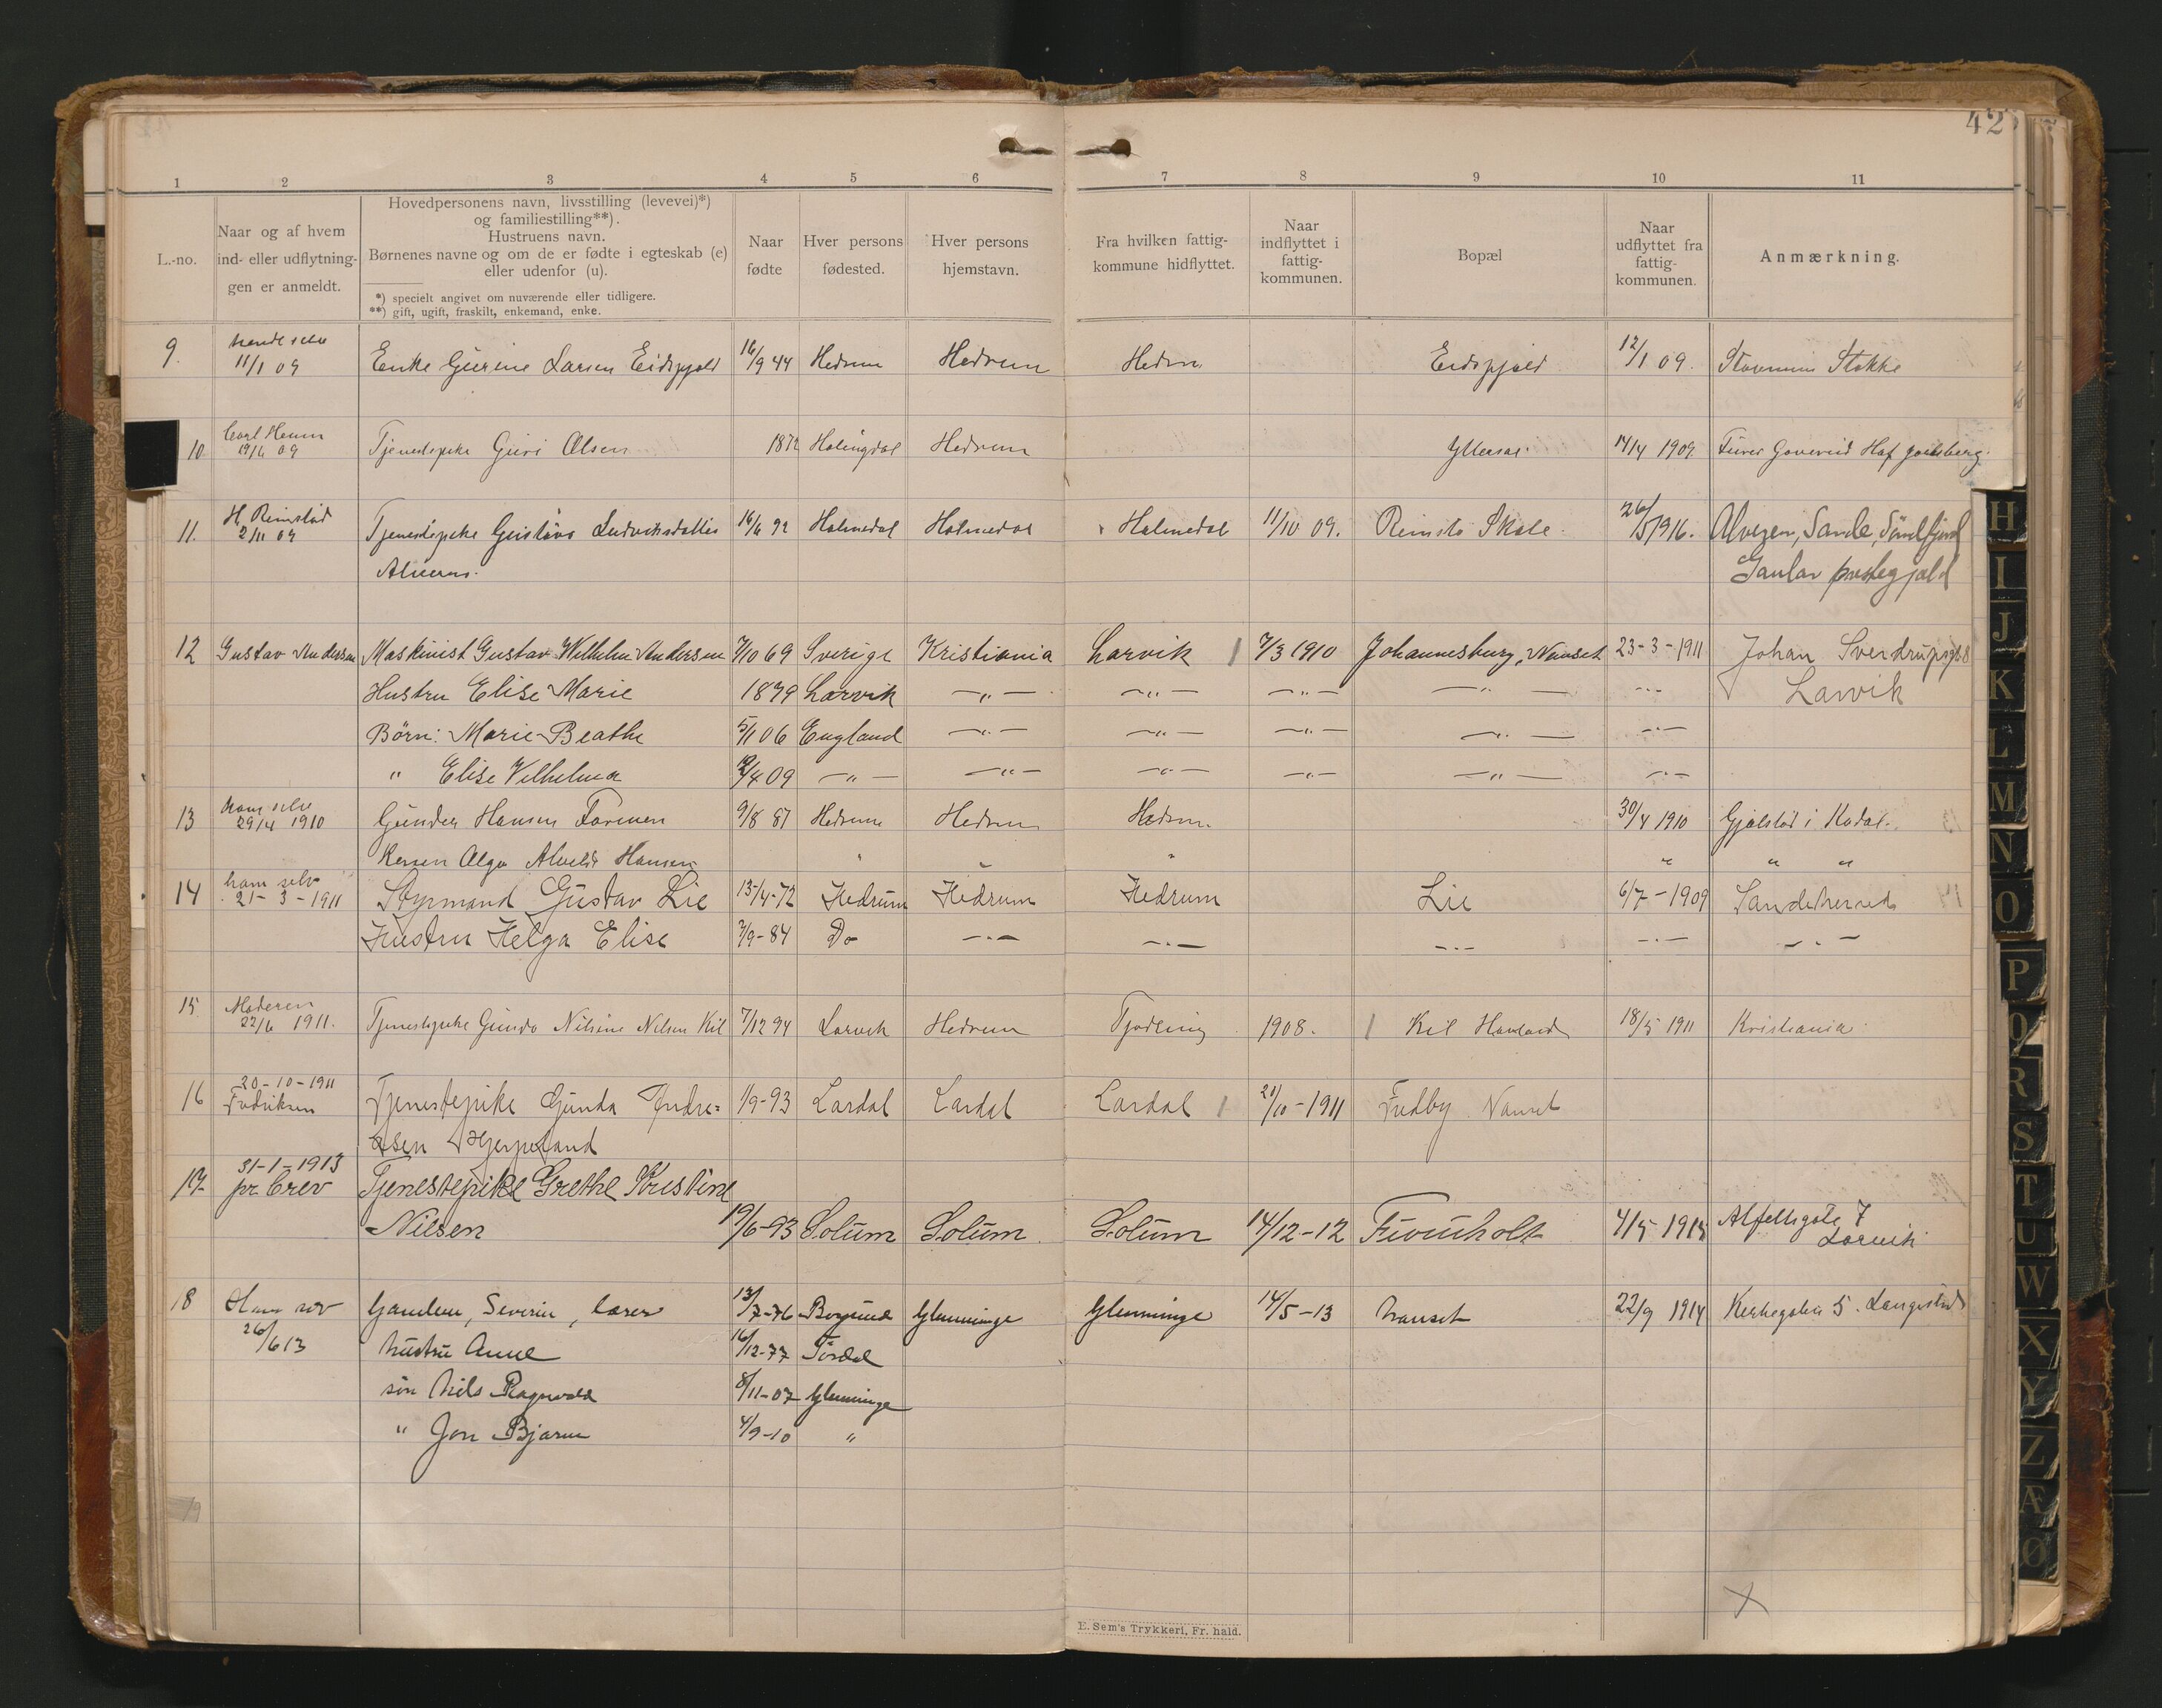 42
1 2 3 4 5 6 7 8 9 10 11
L.-no.
Naar og af hvem
ind- eller udflytning-
gen er anmeldt.
Hovedpersonens navn, livsstilling (levevei)*)
og familiestilling**).
Hustruens navn.
Børnenes navne og om de er fødte i egteskab (e)
eller udenfor (u).
*) specielt angivet om nuværende eller tidligere.
**) gift, ugift, fraskilt, enkemand, enke.
Naar
fødte
Hver persons
fødested.
Hver persons
hjemstavn.
Fra hvilken fattig-
kommune hidflyttet.
Naar
indflyttet i
fattig-
kommunen.
Bopæl
Naar
udflyttet fra
fattig-
kommunen.
Anmærkning.
9. 11/1 09 Enke Gurine Larsen 16/9 44 Hedrum Hedrum Hedrum 12/1 09. Stokke
10 19/4 09 Tjenestepike Guri Olsen 1872 Halingdal Hedrum 14/4 1909
11. 2/11 09 Tjenestepike Gustava 16/6 92 Holmedal Holmedal Holmedal 11/10 09. Skole 26/5 1916. Sande, Søndfjord
prestegjæld
12 Gustav Andersen Maskinist Gustav Wilhelm Andersen 7/10 69 Sverige Kristiania Larvik 7/3 1910 Johannesburg, Nanset 23-3-1911 Johan Sverdrupsgt 8
Hustru Elise Marie 1879 Larvik —„— —„— —„— —„— —„— Larvik
Børn: Marie Beathe 5/1 06 England —„— —„— —„— —„— —„—
„ Elise Vilhelma /4 09 —„— —„— —„— —„— —„— —„—
13 ham selv
29/4 1910 Gunder Hansen Farmen 9/8 87 Hedrum Hedrum Hedrum 30/4 1910 i Kodal.
Hansen „ „ „ „ „ „
14 ham selv
21-3-1911 Styrmand Gustav Lie 13-/4-72 Hedrum Hedrum Hedrum Lie 6/7-1909 Sandeherred
Hustru Helga Elise 7/9-84 Do —„— —„— —„— —„— —„—
15. Moderen
22/6 1911. Tjenestepike Gunda Nilsine Nilsen Kil 7/12 94 Larvik Hedrum Tjødling 1908. Kil 18/5 1911 Kristiania.
16 20-10-1911
Fredriksen Tjenestepike Gunda Andre=
asen 1/9-93 Lardal Lardal Lardal 20/10-1911 Fredby Nanset
17 31-1-1913
pr. brev Tjenestepike Grethe Kristine
Nilsen 19/6-93 Solum Solum Solum 14/12-12 Furuholt 4/5 1915 7
Larvik
18 Ham selv
26/6 13 Gamlem, Severin, lærer 13/7-76 Borgund Glemminge Glemminge 14/5-13 Nanset 22/9 1914 Kirkegaten 5.
hustru Anne 16/12-77
søn Nils Ragnvald 8/11-07 Glemminge
„ Jon Bjarne 4/9-10 „
19
E. Sem's Trykkeri, Fr. hald.
H
I
J
K
L
M
N
O
P
Q
R
S
T
U
W
X
Y
Z
Æ
Ø